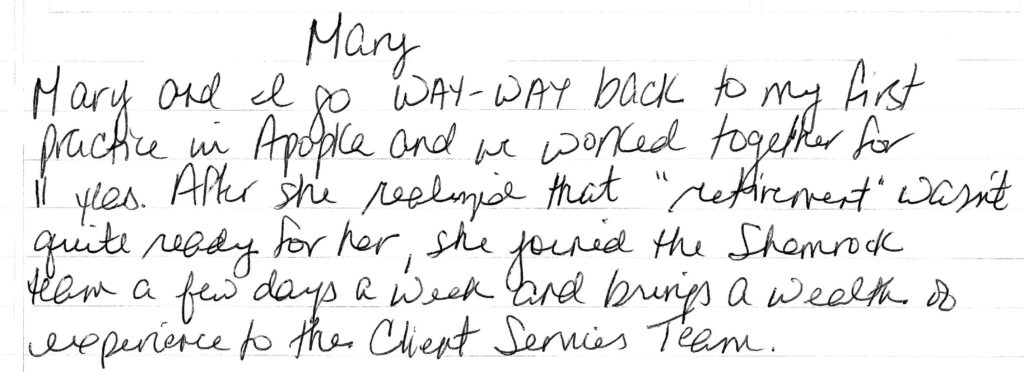 Mary
Mary and I go WAY-WAY back to my first
practice in Apopka and we worked together for
11 yrs. After she realized that "retirement" wasn't
quite ready for her, she joined the Shamrock
team a few days a week and brings a wealth of
experience to the Client Services Team.